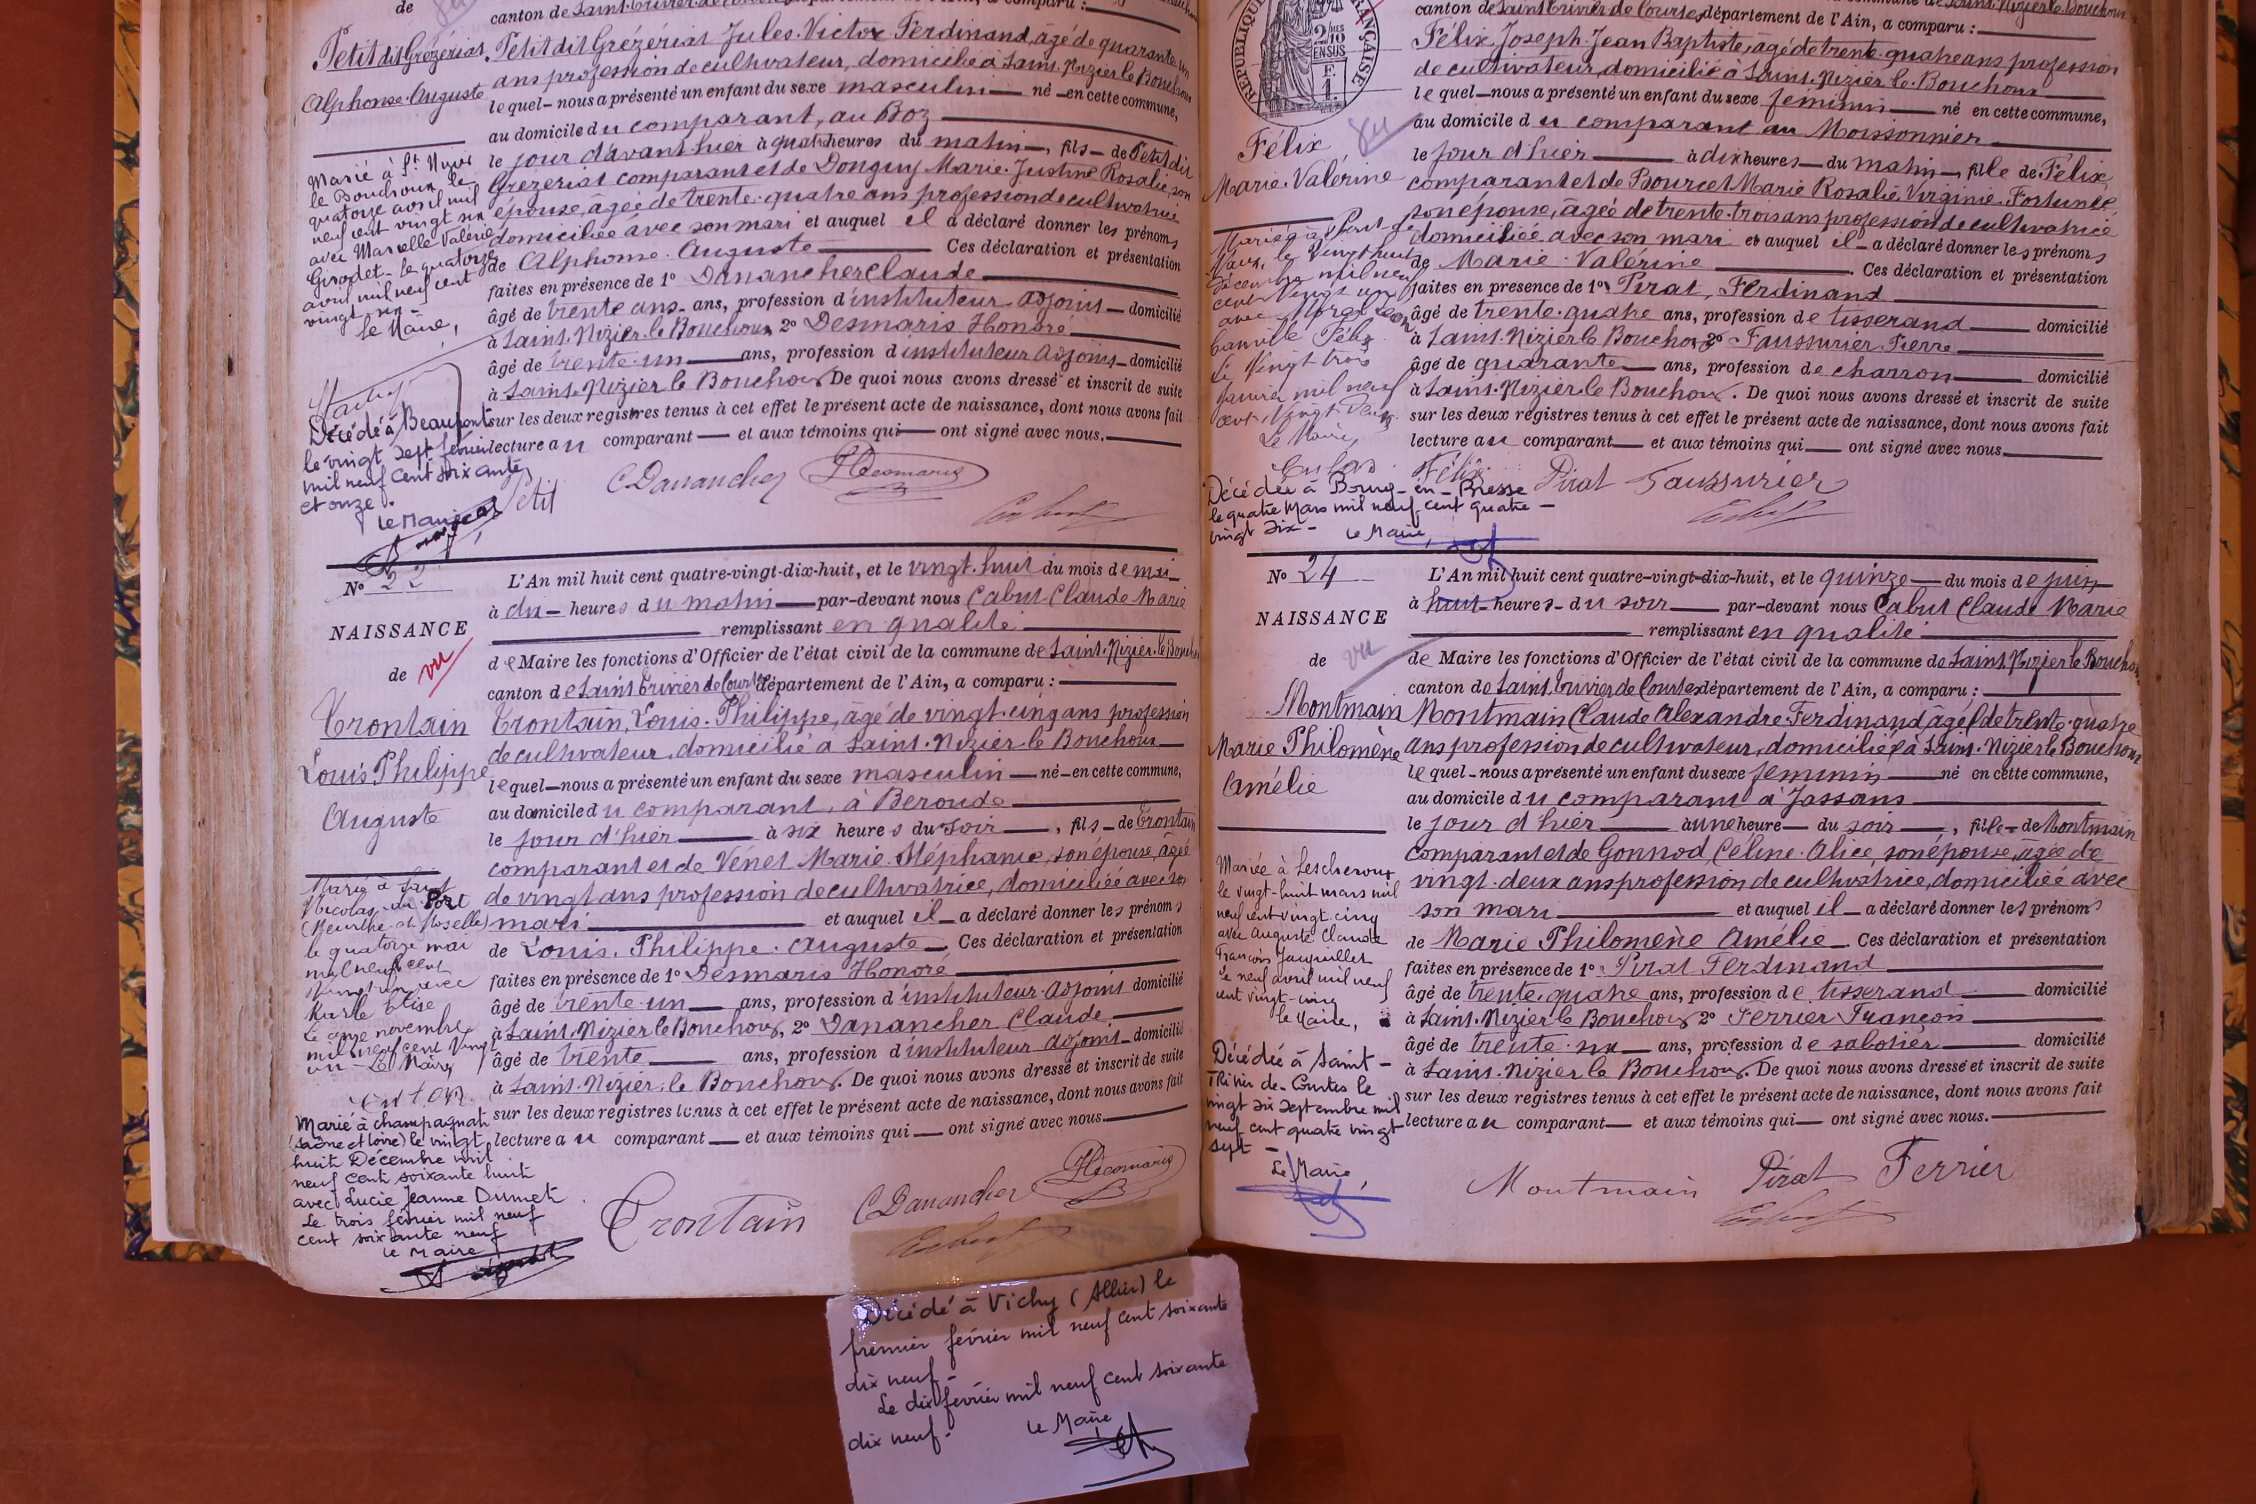 de
canton de Saint-Trivier-de-Courtes département de l'Ain, a comparu :
Petit dit Grézériat
Alphonse Auguste
Petit dit Grézeriat Jules Victor Ferdinand, âgé de quarante un
ans profession de cultivateur, domicilié à Saint-Nizier le Bouchoux
lequel nous a présenté un enfant du sexe masculin né en cette commune,
au domicile du comparant, au Boz
le jour d'avant hier à quatre heures du matin, fils de Petit dit
Grézeriat comparant et de Donguy Marie Justine Rosalie, son
épouse, agée de trente-quatre ans profession de cultivatrice
domiciliée avec son mari et auquel il a déclaré donner les prénoms
de Alphonse Auguste Ces déclaration et présentation
faites en présence de 1º Danancher Claude
âgé de trente ans ans, profession d'instituteur adjoint domicilié
à Saint-Nizier-le Bouchoux, 2º Desmaris Honoré
âgé de trente-un ans, profession d'instituteur adjoint domicilié
à Saint-Nizier le Bouchoux De quoi nous avons dressé et inscrit de suite
sur les deux registres tenus à cet effet le présent acte de naissance, dont nous avons fait
lecture au comparant et aux témoins qui ont signé avec nous.
Marié à St Nizier
le Bouchoux le
quatorze avril mil
neuf cent vingt six
avec Marcelle Valérie
Girodet le quatorze
avril mil neuf cent
vingt six
Le Maire,
Décédé à Beaupont
le vingt sept février
mil neuf cent soixante
et onze.
Le Maire
Petit C Danancher HDesmaris
Nº 22
NAISSANCE
de
vu
Trontain
Louis Philippe
Auguste
L'An mil huit cent quatre-vingt-dix-huit, et le vingt-huit du mois de mai
à dix heures du matin par-devant nous Cabut Claude Marie
remplissant en qualité
de Maire les fonctions d'Officier de l'état civil de la commune de Saint-Nizier-le Bouchoux
canton de Saint Trivier de Courtes département de l'Ain, a comparu :
Trontain, Louis-Philippe, âgé de vingt-cinq ans profession
de cultivateur, domicilié à Saint-Nizier le Bouchoux
lequel nous a présenté un enfant du sexe masculin né en cette commune,
au domicile du comparant, à Beroude
le jour d'hier à six heures du soir, fils de Trontain
comparant et de Vénet Marie Stéphanie, son épouse, âgée
de vingt ans profession de cultivatrice, domiciliée avec son
mari et auquel il a déclaré donner les prénoms
de Louis Philippe Auguste Ces déclaration et présentation
faites en présence de 1º Desmaris Honoré
âgé de trente-un ans, profession d'instituteur adjoint domicilié
à Saint-Nizier le Bouchoux, 2º Danancher Claude
âgé de trente ans, profession d'instituteur adjoint domicilié
à Saint-Nizier le Bouchoux. De quoi nous avons dressé et inscrit de suite
sur les deux registres tenus à cet effet le présent acte de naissance, dont nous avons fait
lecture au comparant et aux témoins qui ont signé avec nous.
Marié à Saint
Nicolas du Port
(Meurthe et Moselle)
le quatorze mai
mil neuf cent
avec
le onze novembre
mil neuf cent vingt
un Le Maire
Marié à Champagnat
(Saône et Loire) le vingt
huit Décembre mil
neuf cent soixante huit
avec Lucie Jeanne Dumet.
Le trois février mil neuf
cent soixante neuf
Le Maire
Trontain C Danancher HDesmaris
Décédé à Vichy (Allier) le
premier février mil neuf cent soixante
dix neuf -
Le dix février mil neuf cent soixante
dix neuf.
Le Maire
RÉPUBLIQUE FRANÇAISE
2/10 EN SUS
F. 1.
canton de Saint Trivier de Courtes, département de l'Ain, a comparu :
Félix
Marie Valérine
Félix Joseph Jean Baptiste, âgé de trente-quatre ans profession
de cultivateur, domicilié à Saint-Nizier-le-Bouchoux
lequel nous a présenté un enfant du sexe féminin né en cette commune,
au domicile du comparant au Moissonnier
le jour d'hier à dix heures du matin, fille de Félix
comparant et de Bourcet Marie Rosalie Virginie Fortunée
son épouse, âgée de trente-trois ans profession de cultivatrice
domiciliée avec son mari et auquel il a déclaré donner les prénoms
de Marie Valérine Ces déclaration et présentation
faites en présence de 1º Pirat, Ferdinand
âgé de trente-quatre ans, profession de tisserand domicilié
à Saint-Nizier le Bouchoux 2º Faussurier Pierre
âgé de quarante ans, profession de charron domicilié
à Saint-Nizier-le Bouchoux. De quoi nous avons dressé et inscrit de suite
sur les deux registres tenus à cet effet le présent acte de naissance, dont nous avons fait
lecture au comparant et aux témoins qui ont signé avec nous.
Mariée à Pont de
Vaux, le vingt huit
décembre mil neuf
cent vingt un
avec
Félix
le vingt trois
janvier mil neuf
cent vingt deux
Le Maire,
Félix Pirat Faussurier
Décédée à Bourg-en-Bresse
le quatre Mars mil neuf cent quatre -
vingt dix -
Le Maire,
Nº 24
NAISSANCE
de
vu
Montmain
Marie Philomène
Amélie
L'An mil huit cent quatre-vingt-dix-huit, et le quinze du mois de juin
à huit heures du soir par-devant nous Cabut Claude Marie
remplissant en qualité
de Maire les fonctions d'Officier de l'état civil de la commune de Saint Nizier le Bouchoux
canton de Saint Trivier de Courtes département de l'Ain, a comparu :
Montmain Claude Alexandre Ferdinand, âgé de trente-quatre
ans profession de cultivateur, domicilié à Saint-Nizier le Bouchoux
lequel nous a présenté un enfant du sexe féminin né en cette commune,
au domicile du comparant à Jassans
le jour d'hier à une heure du soir, fille de Montmain
comparant et de Gonnod Céline Alice, son épouse, âgée de
vingt-deux ans profession de cultivatrice, domiciliée avec
son mari et auquel il a déclaré donner les prénoms
de Marie Philomène Amélie Ces déclaration et présentation
faites en présence de 1º Pirat Ferdinand
âgé de trente-quatre ans, profession de tisserand domicilié
à Saint-Nizier le Bouchoux 2º Ferrier François
âgé de trente-six ans, profession de sabotier domicilié
à Saint-Nizier le Bouchoux. De quoi nous avons dressé et inscrit de suite
sur les deux registres tenus à cet effet le présent acte de naissance, dont nous avons fait
lecture au comparant et aux témoins qui ont signé avec nous.
Mariée à Lescheroux
le vingt-huit mars mil
neuf cent vingt cinq
avec Auguste Claude
François Jacquillet
Le neuf avril mil neuf
cent vingt-cinq
Le Maire,
Décédée à Saint-
Trivier-de-Courtes le
vingt six Septembre mil
neuf cent quatre vingt
sept -
Le Maire,
Montmain Pirat Ferrier